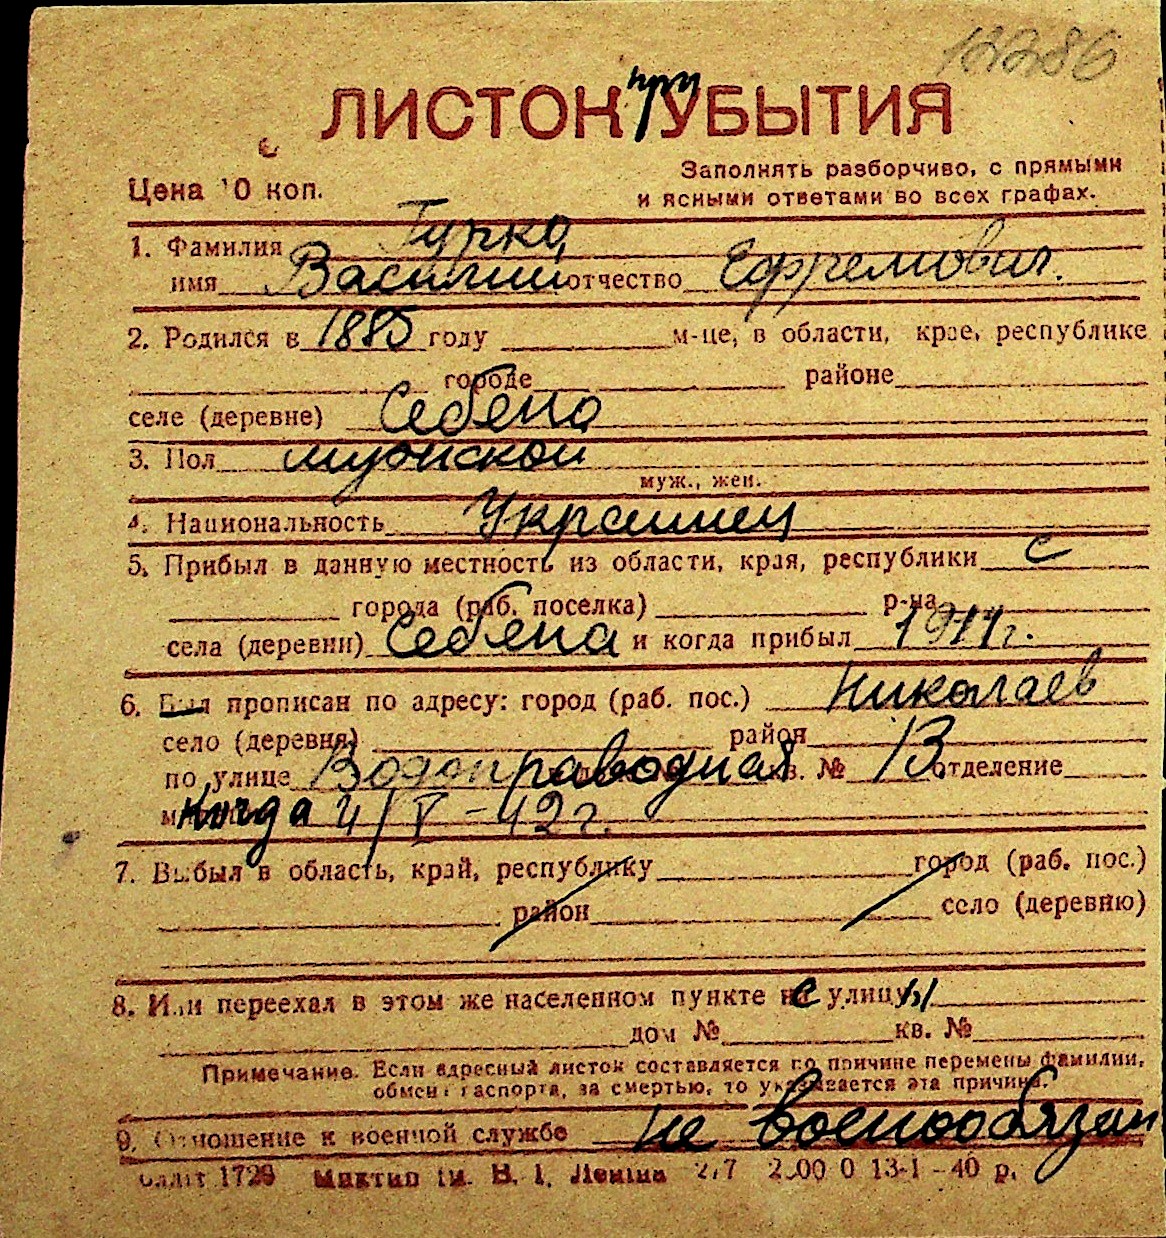 12286
ЛИСТОК при УБЫТИЯ
Цена 10 коп.
Заполнять разборчиво, с прямыми
и ясными ответами во всех графах.
1. Фамилия Гурко
имя Василий отчество Ефремович.
2. Родился в 1885 году м-це, в области, крае, республике
городе районе
селе (деревне) Себено
3. Пол мужской
муж., жен.
4. Национальность Украинец
5. Прибыл в данную местность из области, края, республики с
города (раб. поселка) р-на
села (деревни) Себена и когда прибыл 1911 г.
6. Был прописан по адресу: город (раб. пос.) Николаев
село (деревня) район
по улице Водоправодная кв. № 13 отделение
Когда 4/V-42 г.
7. Выбыл в область, край, республику город (раб. пос.)
район село (деревню)
8. Или переехал в этом же населенном пункте с улицы
дом № кв. №
Примечание. Если адресный листок составляется по причине перемены фамилии,
обмена паспорта, за смертью, то указывается эта причина.
9. Отношение к военной службе не военообязан
1729 Миктип ім. В. І. Леніна 13-1-40 р.